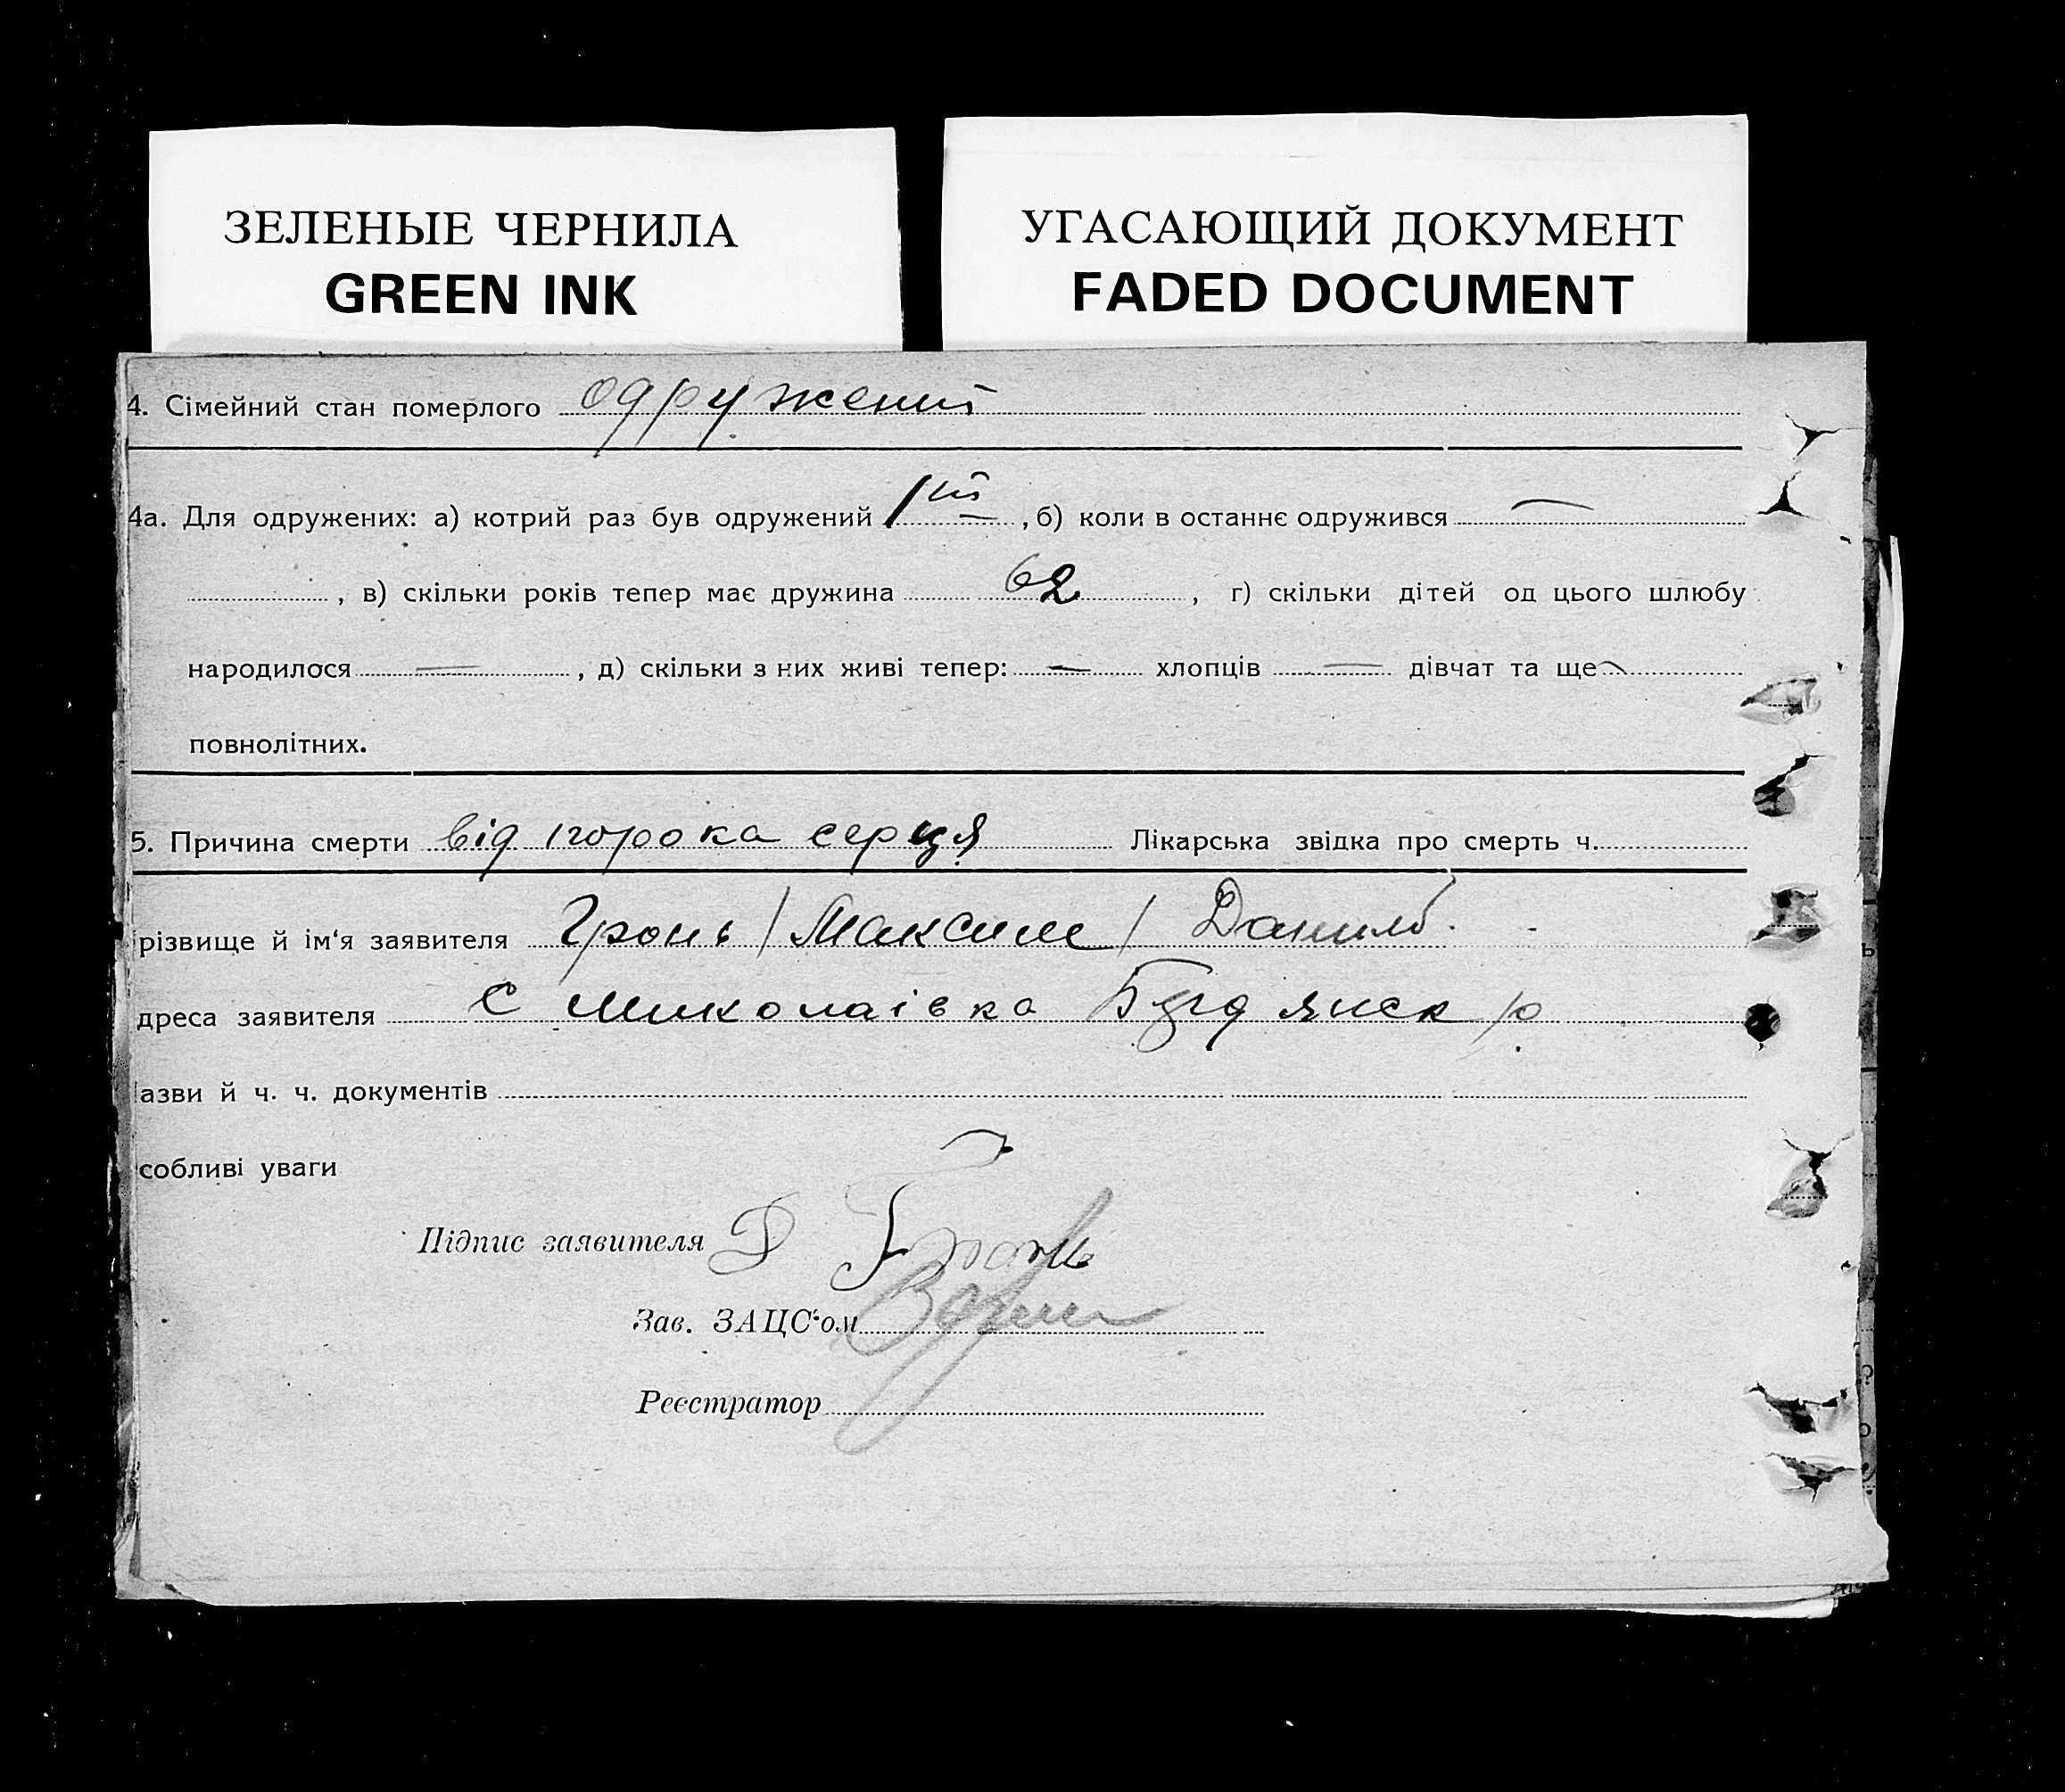 ЗЕЛЕНЫЕ ЧЕРНИЛА
GREEN INK
УГАСАЮЩИЙ ДОКУМЕНТ
FADED DOCUMENT
4. Сімейний стан померлого одружений
4а. Для одружених: а) котрий раз був одружений 1ий, б) коли в останнє одружився —
, в) скільки років тепер має дружина 62, г) скільки дітей од цього шлюбу
народилося —, д) скільки з них живі тепер: — хлопців — дівчат та ще —
повнолітних.
5. Причина смерти від порока серця Лікарська звідка про смерть ч.
різвище й ім‘я заявителя Гронь /Максим/ Данило.
дреса заявителя с Миколаївка р
азви й ч. ч. документів
собливі уваги
Підпис заявителя Гронь
Зав. ЗАЦС‘ом
Реєстратор